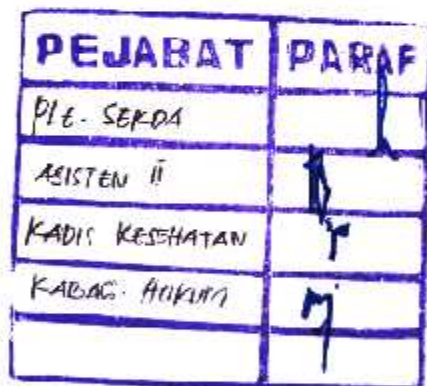 PEJABAT PARAF
Plt. SEKDA
ASISTEN II
KADIS KESEHATAN
KABAG. HUKUM